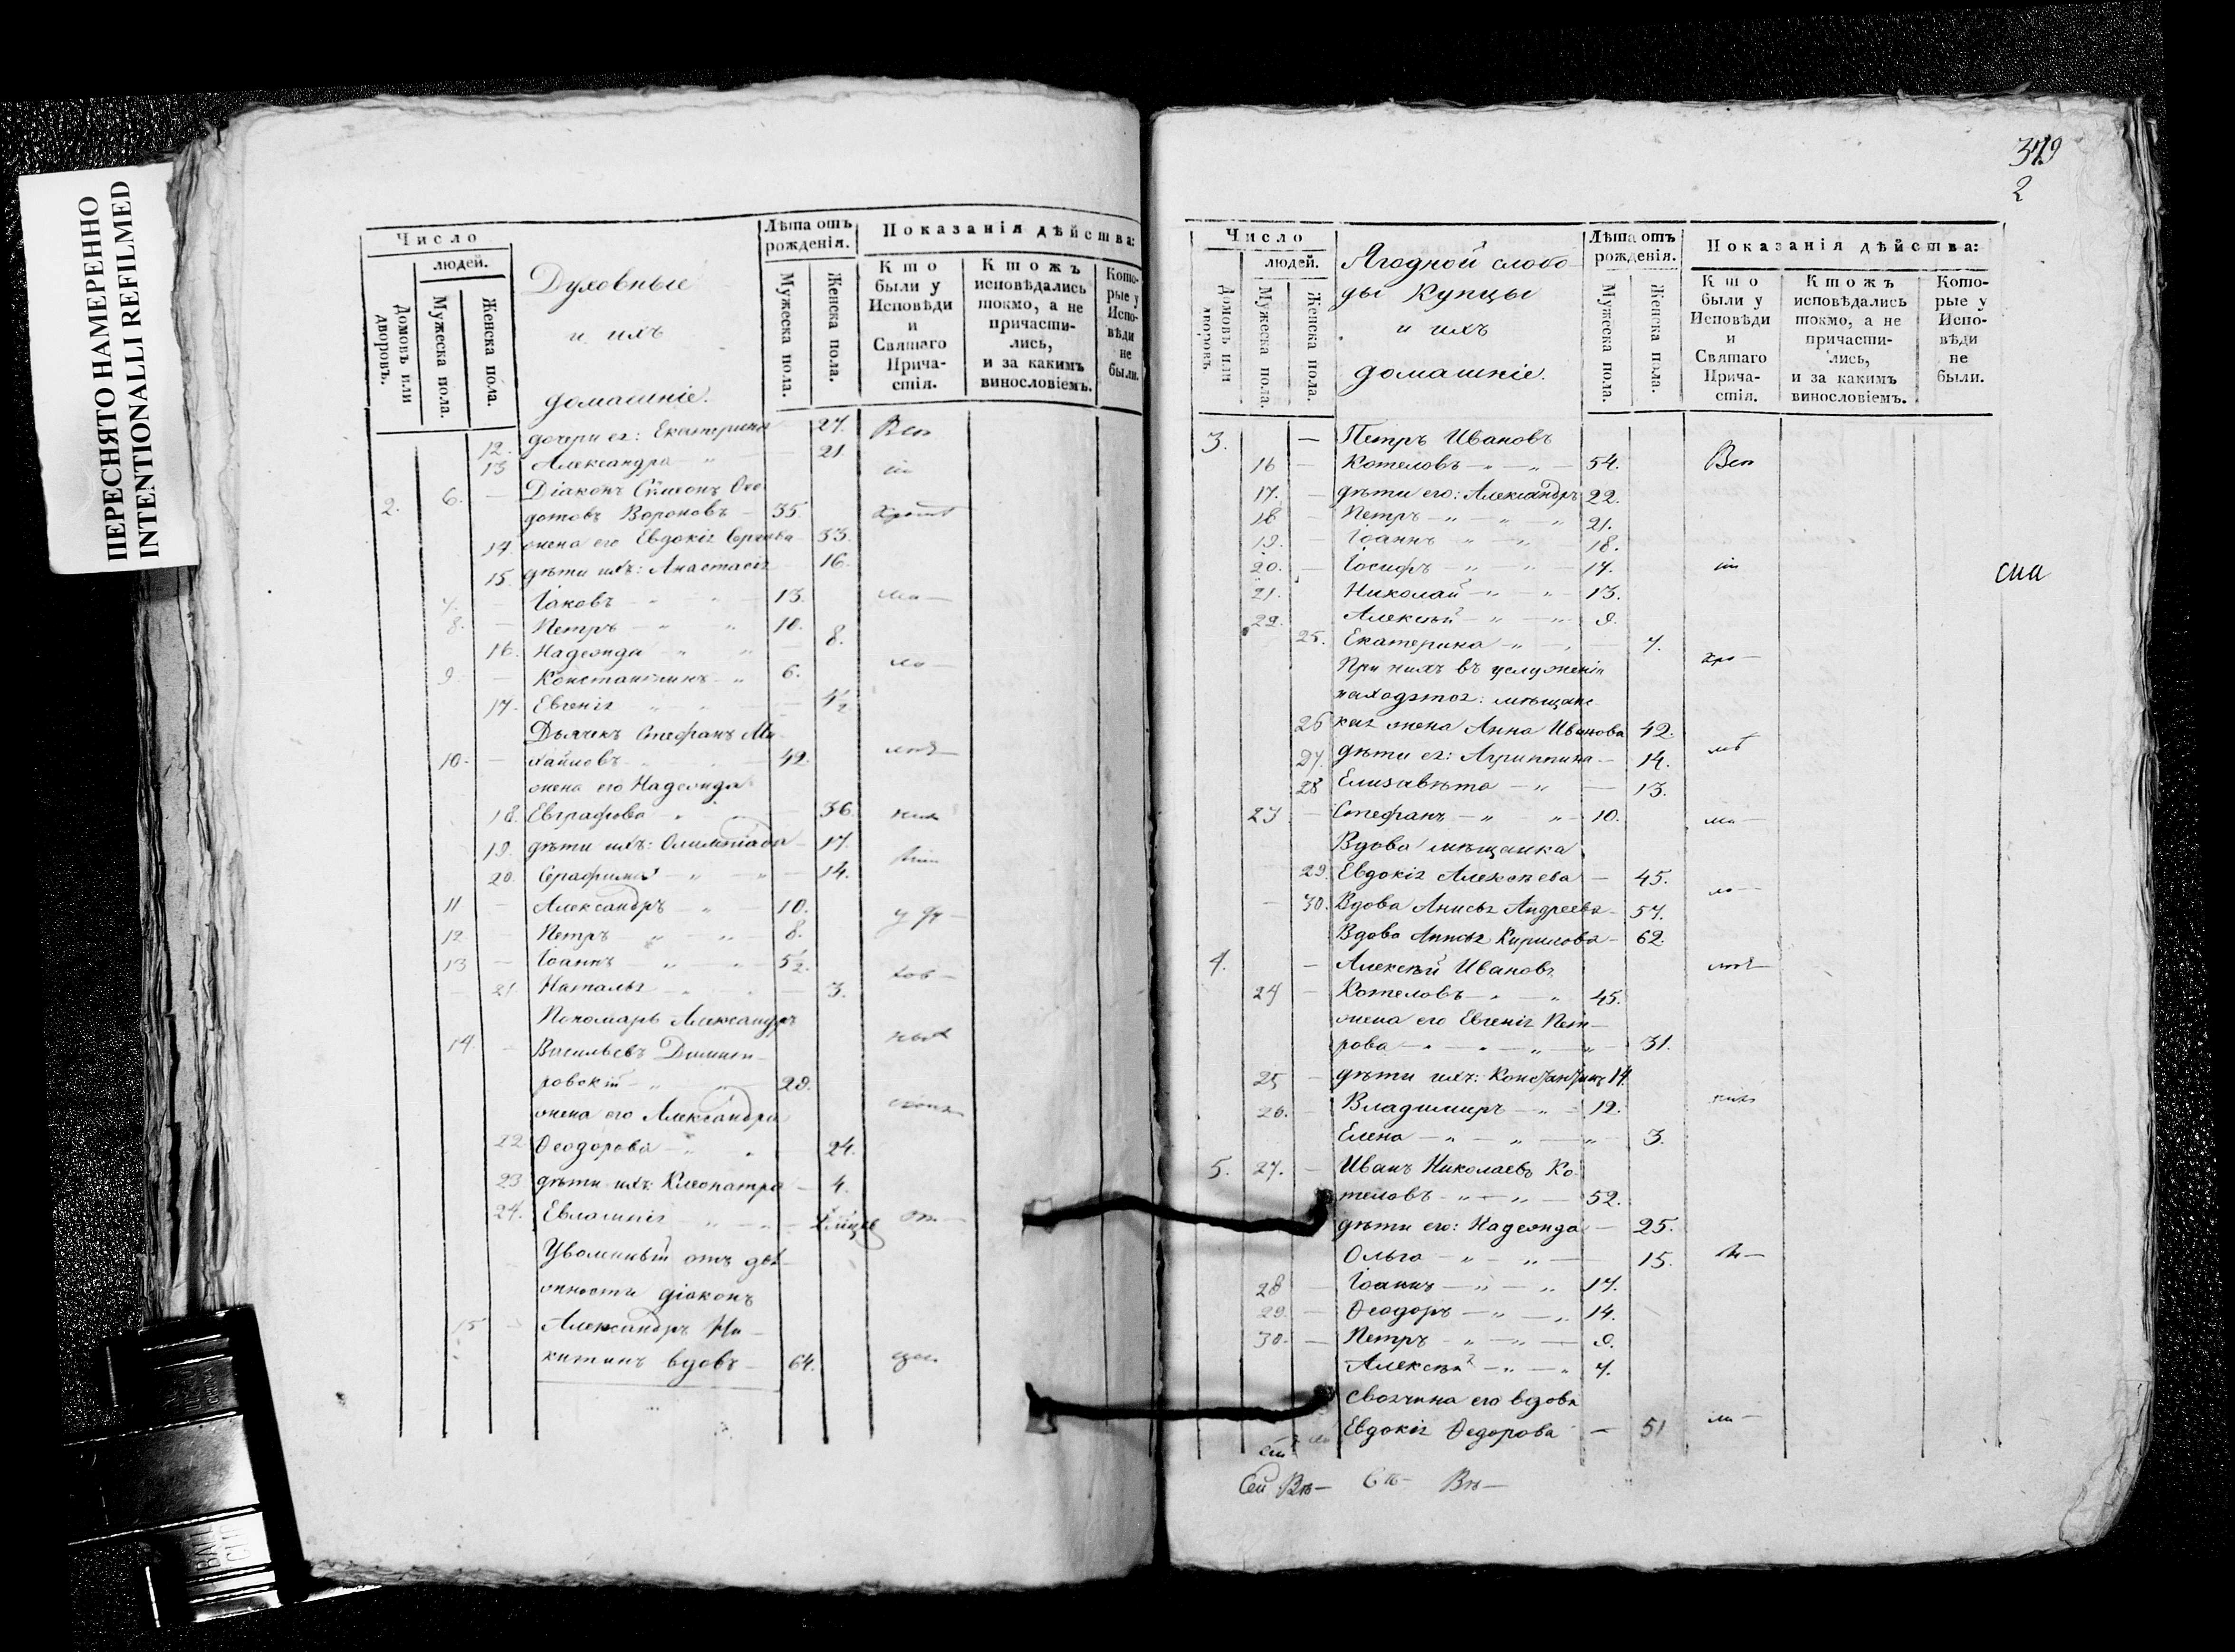 ПЕРЕСНЯТО НАМЕРЕННО
INTENTIONALLI REFILMED
Число
людей.
Домовъ или дворовъ.
Мужеска пола.
Женска пола.
Духовные
и ихъ
домашніе.
Лѣта отъ рожденія.
Мужеска пола.
Женска пола.
Показанія дѣйства:
Кто были у Исповѣди и Святаго Прича-стія.
Ктожъ исповѣдались токмо, а не причасти-лись, и за какимъ винословіемъ.
Кото-рые у Испо-вѣди не были.
12. дочери ея: Екатерина 27. Вси
13 Александра 21
2. 6. Діаконъ Сѵмеонъ Ѳео
дотовъ Вороновъ 35.
14. жена его Евдокія Сергѣева 33.
15. дѣти ихъ: Анастасія 16.
7. Іаковъ 13.
8. Петръ 10.
16. Надежда 8.
9. Константинъ 6.
17. Евгенія 4½
Дьячекъ Стефанъ Ми
10. хайловъ 42.
жена его Надежда
18. Евграфова 36.
19. дѣти ихъ: Олимпіада 17.
20. Серафима 14.
11 Александръ 10.
12. Петръ 8.
13 Іоаннъ 5½.
21 Наталья 3.
Пономарь Александръ
14. Васильевъ Димит-
ровскій 28.
жена его Александра
22 Ѳеодорова 24.
23 дѣти ихъ: Клеопатра 4.
24. Евлампія
Уволенный отъ дол-
жности діаконъ
15 Александръ Ни-
китинъ вдовъ 64.
349
2
Число
людей.
Домовъ или дворовъ.
Мужеска пола.
Женска пола.
Ягодной слобо
ды Купцы
и ихъ
домашніе.
Лѣта отъ рожденія.
Мужеска пола.
Женска пола.
Показанія дѣйства:
Кто были у Исповѣди и Святаго Прича-стія.
Ктожъ исповѣдались токмо, а не причасти-лись, и за какимъ винословіемъ.
Кото-рые у Испо-вѣди не были.
3. Петръ Ивановъ
16 Котеловъ 54. Вси
17. дѣти его: Александръ 22.
18 Петръ 21.
19. Іоаннъ 18.
20. Іосифъ 17.
21. Николай 13.
22. Алексѣй 9.
25. Екатерина 7.
При нихъ въ услуженіи
находятся: мѣщанс
26 кая жена Анна Иванова 42.
27. дѣти ея: Агриппина 14.
28 Елизавѣта 13.
23 Стефанъ 10.
Вдова мѣщанка
29. Евдокія Алексѣева 45.
30. Вдова Анисья Андреева 57.
Вдова Анисья Кирилова 62.
4. Алексѣй Ивановъ
24 Котеловъ 45.
жена его Евгенія Пет-
рова 31.
25 дѣти ихъ: Константинъ 14
26. Владимиръ 12.
Елена 3.
5. 27. Иванъ Николаевъ Ко
теловъ 52.
дѣти его: Надежда 25.
Ольга 15.
28 Іоаннъ 17.
29. Ѳеодоръ 14.
30. Петръ 9.
Алексѣй 7.
Своячина его вдова
Евдокія Ѳедорова 51